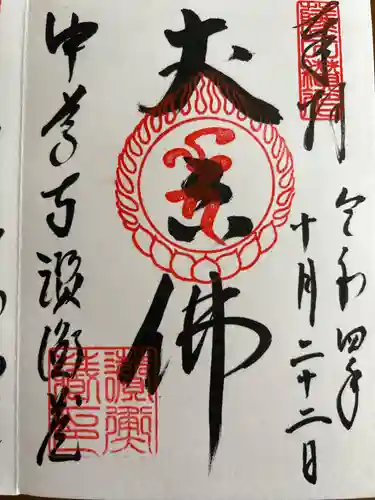 奉拝
令和四年
十月二十二日
丈六佛
中尊寺讃衡蔵
讃衡
蔵印